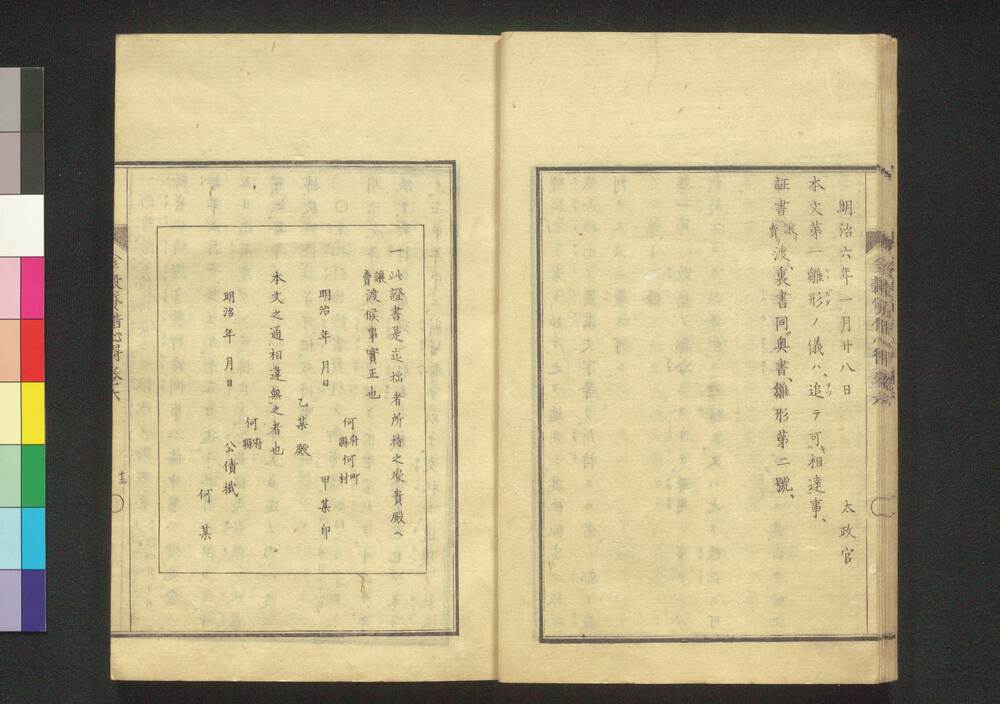 明治六年一月廿八日　太政官
本文第一雛形ノ儀ハ、追テ可相達事、
証書譲賣渡裏書同奥書、雛形第二號、
一此證書是迄拙者所持之處貴殿ヘ
譲賣渡候事實正也
何府縣何町村
明治　年　月日　甲某印
乙某殿
本文之通相違無之者也
何府縣
明治　年　月日　公債掛
何某
十三